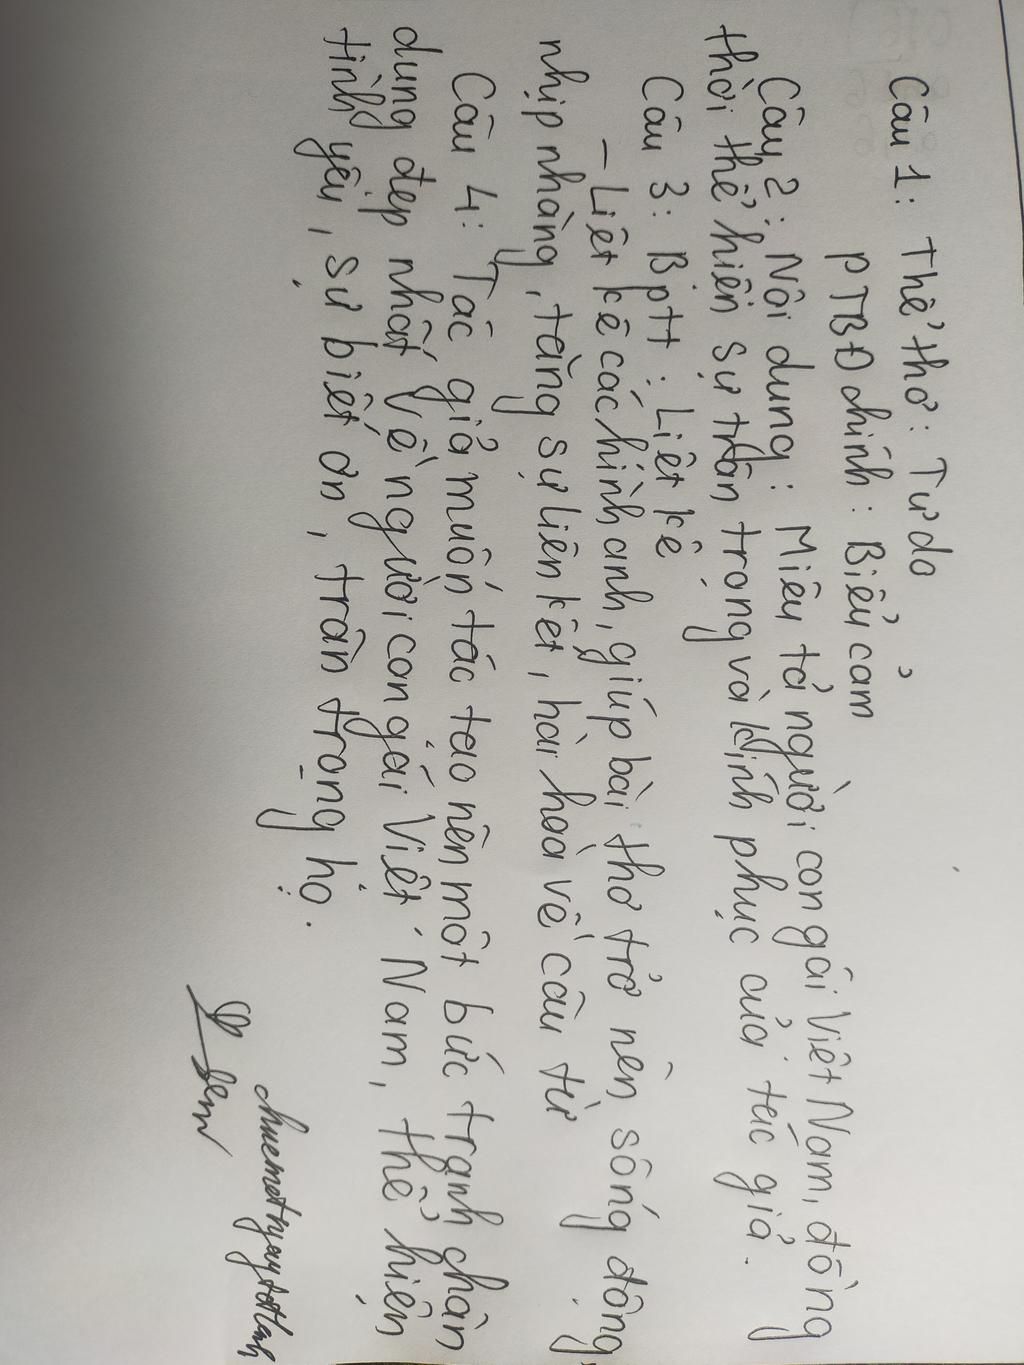 Câu 1: Thể thơ: Tự do
PTBĐ chính: Biểu cảm
Câu 2: Nội dung: Miêu tả người con gái Việt Nam, đồng
thời thể hiện sự trân trọng và kính phục của tác giả.
Câu 3: Bptt: Liệt kê
- Liệt kê các hình ảnh, giúp bài thơ trở nên sống động,
nhịp nhàng, tăng sự liên kết, hài hoà về câu từ
Câu 4: Tác giả muốn tác tạo nên một bức tranh chân
dung đẹp nhất về người con gái Việt Nam, thể hiện
tình yêu, sự biết ơn, trân trọng họ.